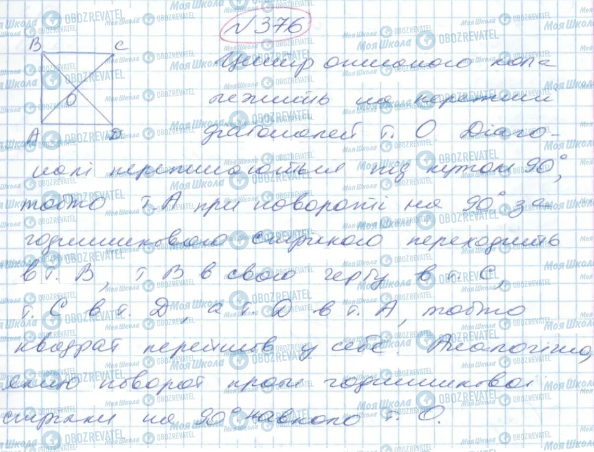 №376
B C
Центр описаного кола
О
лежить на перетині
A D
діагоналей т. О. Діаго-
налі перетинаються під кутом 90°,
тобто т. А при повороті на 90° за
годинниковою стрілкою переходить
в т. В, т. В в свою чергу в т. С,
т. С в т. D, а т. D в т. А, тобто
квадрат перейшов у себе. Аналогічно,
якщо поворот проти годинникової
стрілки на 90° навколо т. О.
Моя Школа
OBOZREVATEL